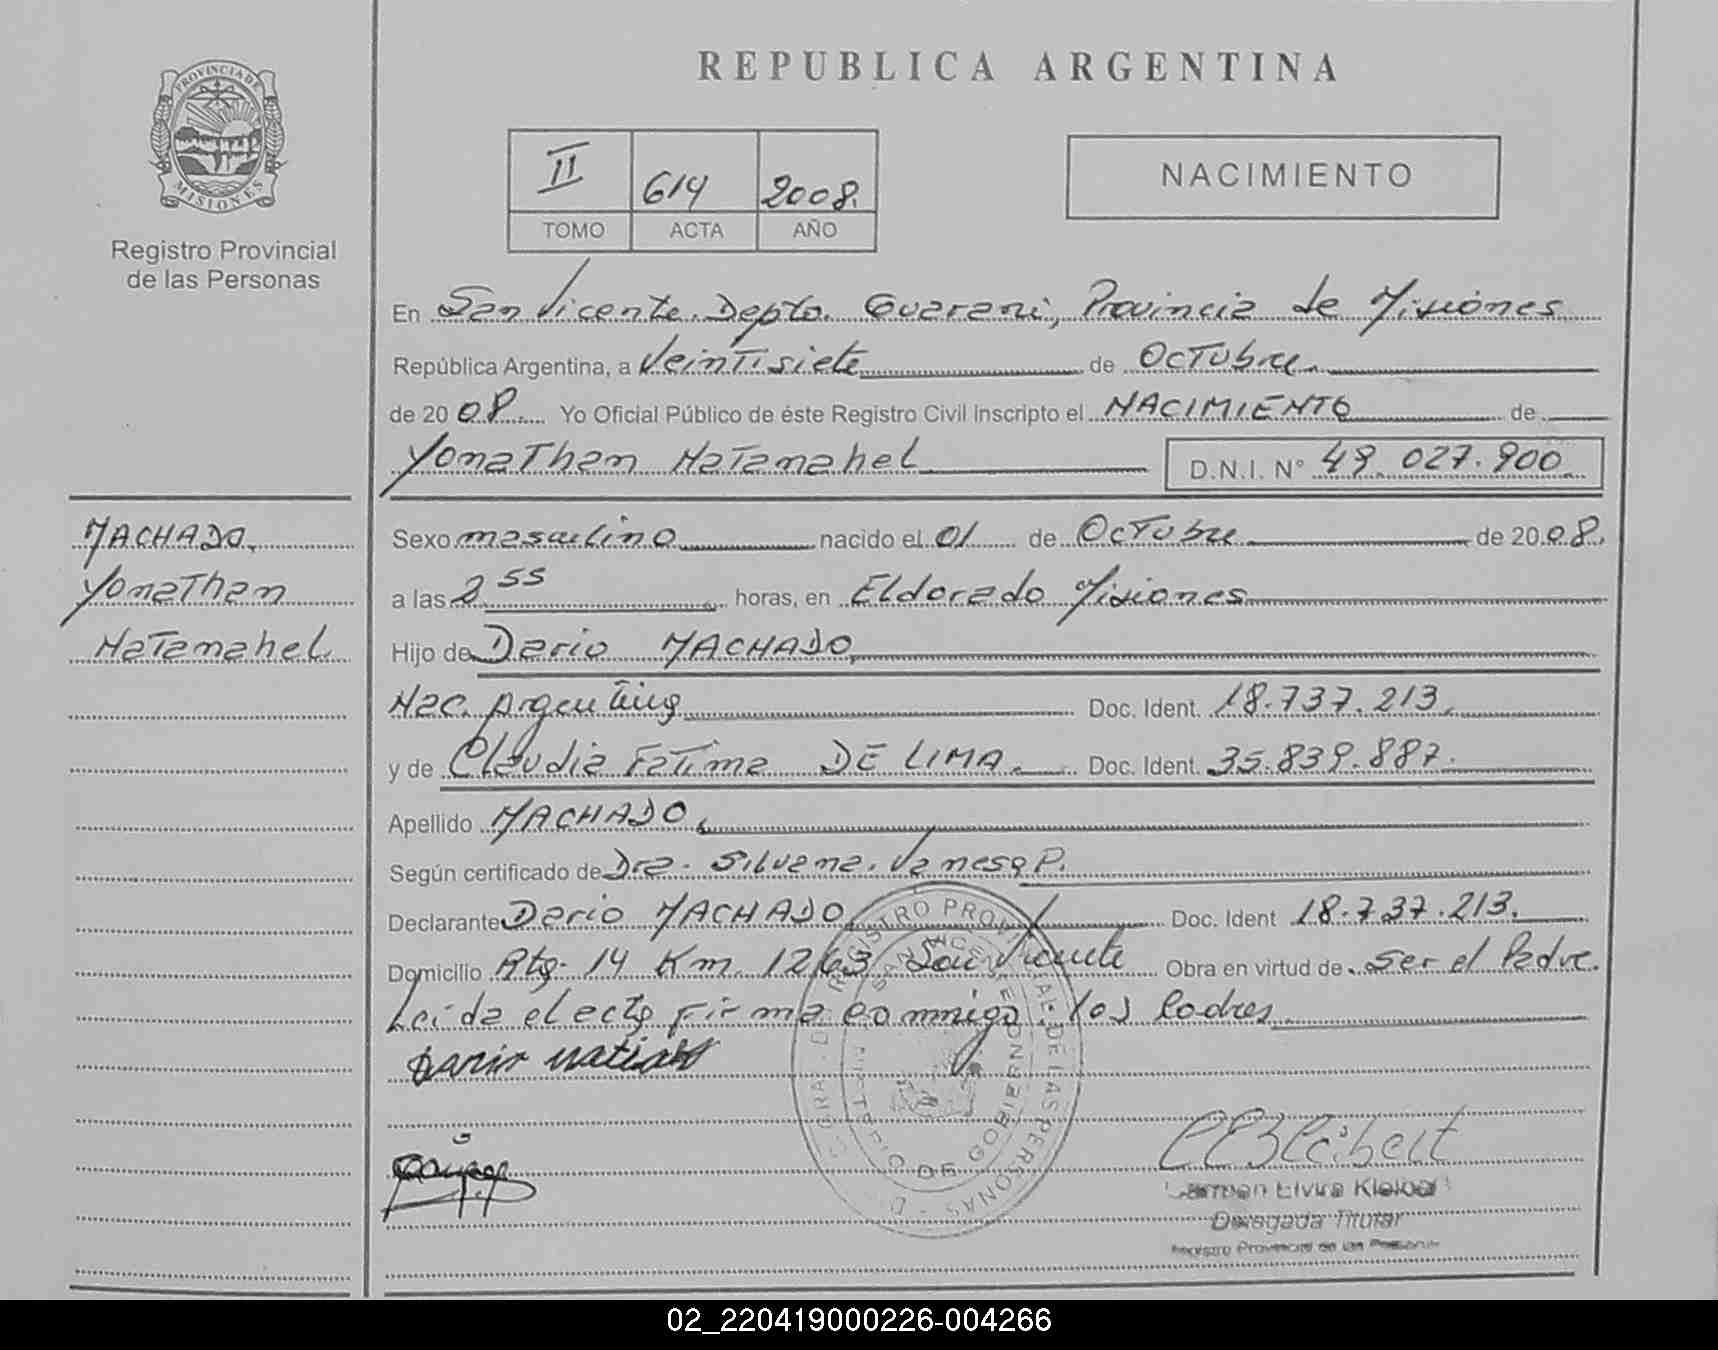 REPUBLICA ARGENTINA
PROVINCIA DE
MISIONES
Registro Provincial
de las Personas
II 614 2008.
TOMO ACTA AÑO
NACIMIENTO
En San Vicente. Depto. Guarani, Provincia de Misiones
República Argentina, a Veintisiete de Octubre.
de 2008. Yo Oficial Público de éste Registro Civil Inscripto el NACIMIENTO de
Yonathan Natanahel D.N.I. N° 49.027.900
MACHADO.
Yonathan
Natanahel.
Sexo masculino nacido el 01 de Octubre de 2008.
a las 2 55 horas, en Eldorado Misiones
Hijo de Dario MACHADO,
Nac. Argentina Doc. Ident. 18.737.213.
y de Claudia Fatima DE LIMA. Doc. Ident. 35.839.887.
Apellido MACHADO,
Según certificado de Dra. Silvana. Vanesa P.
Declarante Dario MACHADO Doc. Ident 18.737.213.
Domicilio Rta. 14 Km. 1263 San Vicente Obra en virtud de ser el Padre.
Leida el acta firma conmigo: los Padres.
Dario
REGISTRO PROVINCIAL DE LAS PERSONAS
SAN VICENTE
DE GOBIERNO
Carmen Elvira
Delegada Titular
Registro Provincial de las Personas
02_220419000226-004266